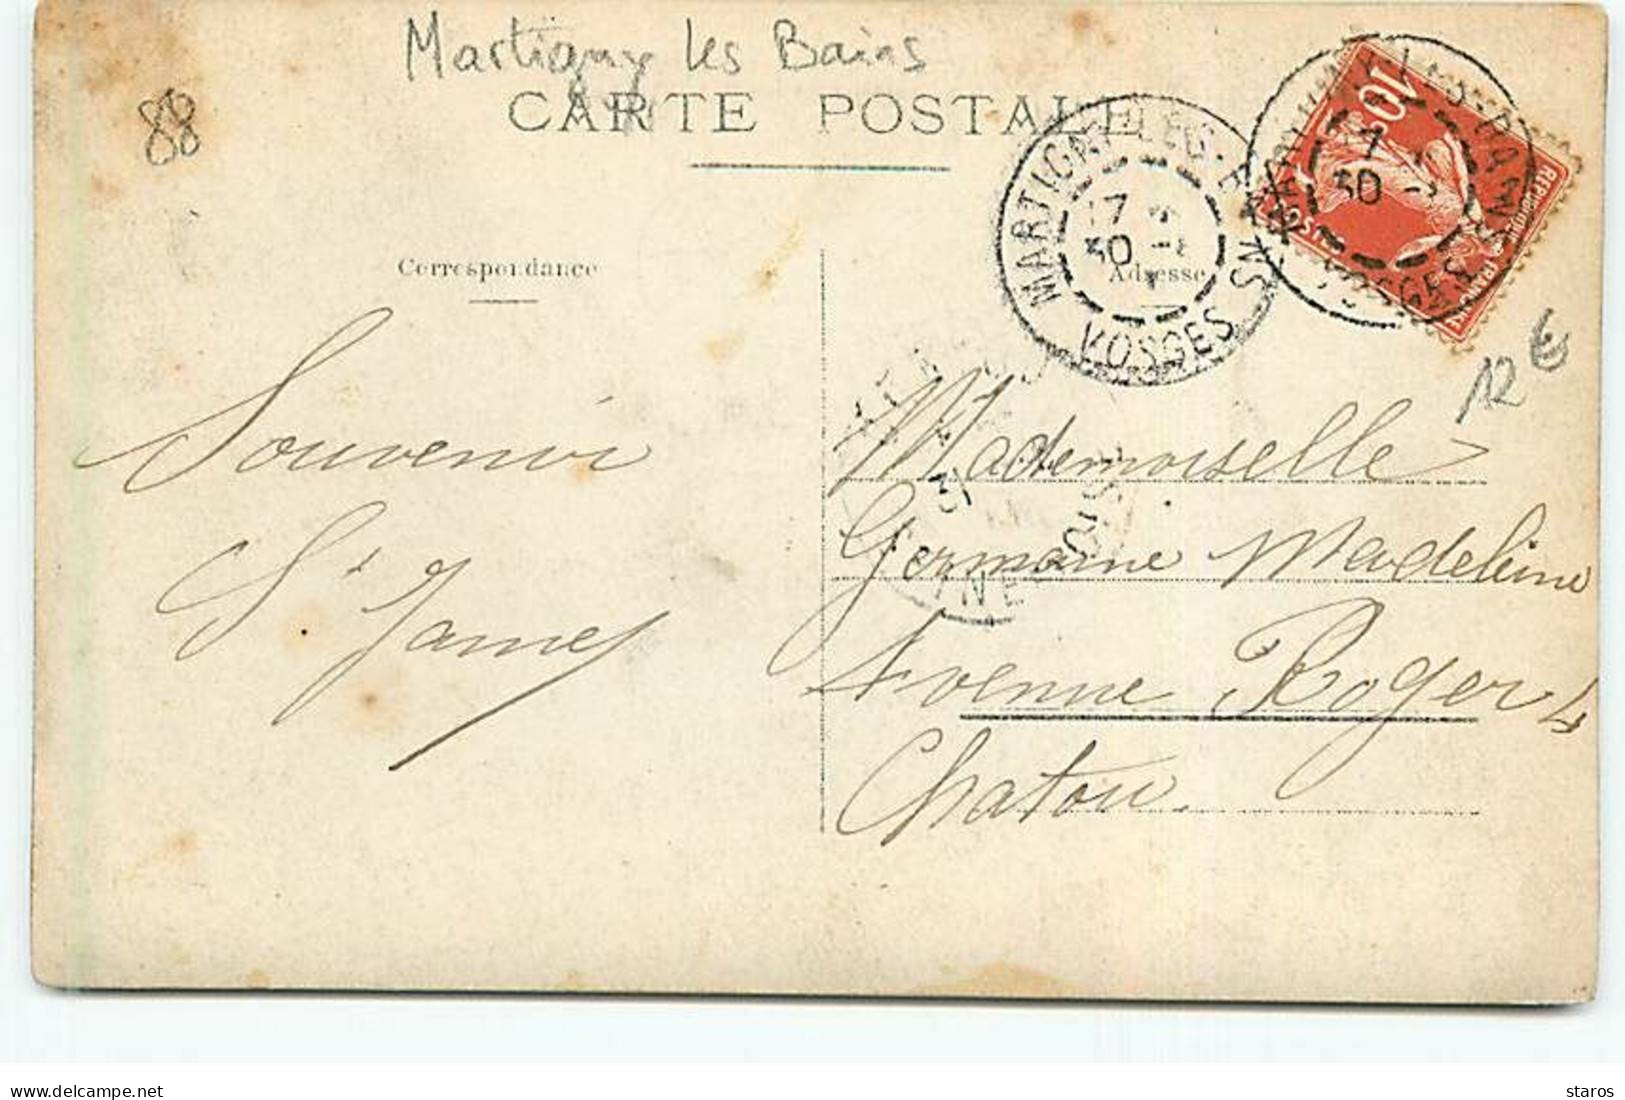 Martigny les Bains
88
CARTE POSTALE
MARTIGNY-LES-BAINS
17
30
VOSGES
10
7
30
VOSGES
12 €
Correspondance
Adresse
Souvenir
St James
31
Mademoiselle
Germaine Madeleine
Avenue Roger 4
Chatou
delcampe.net
staros